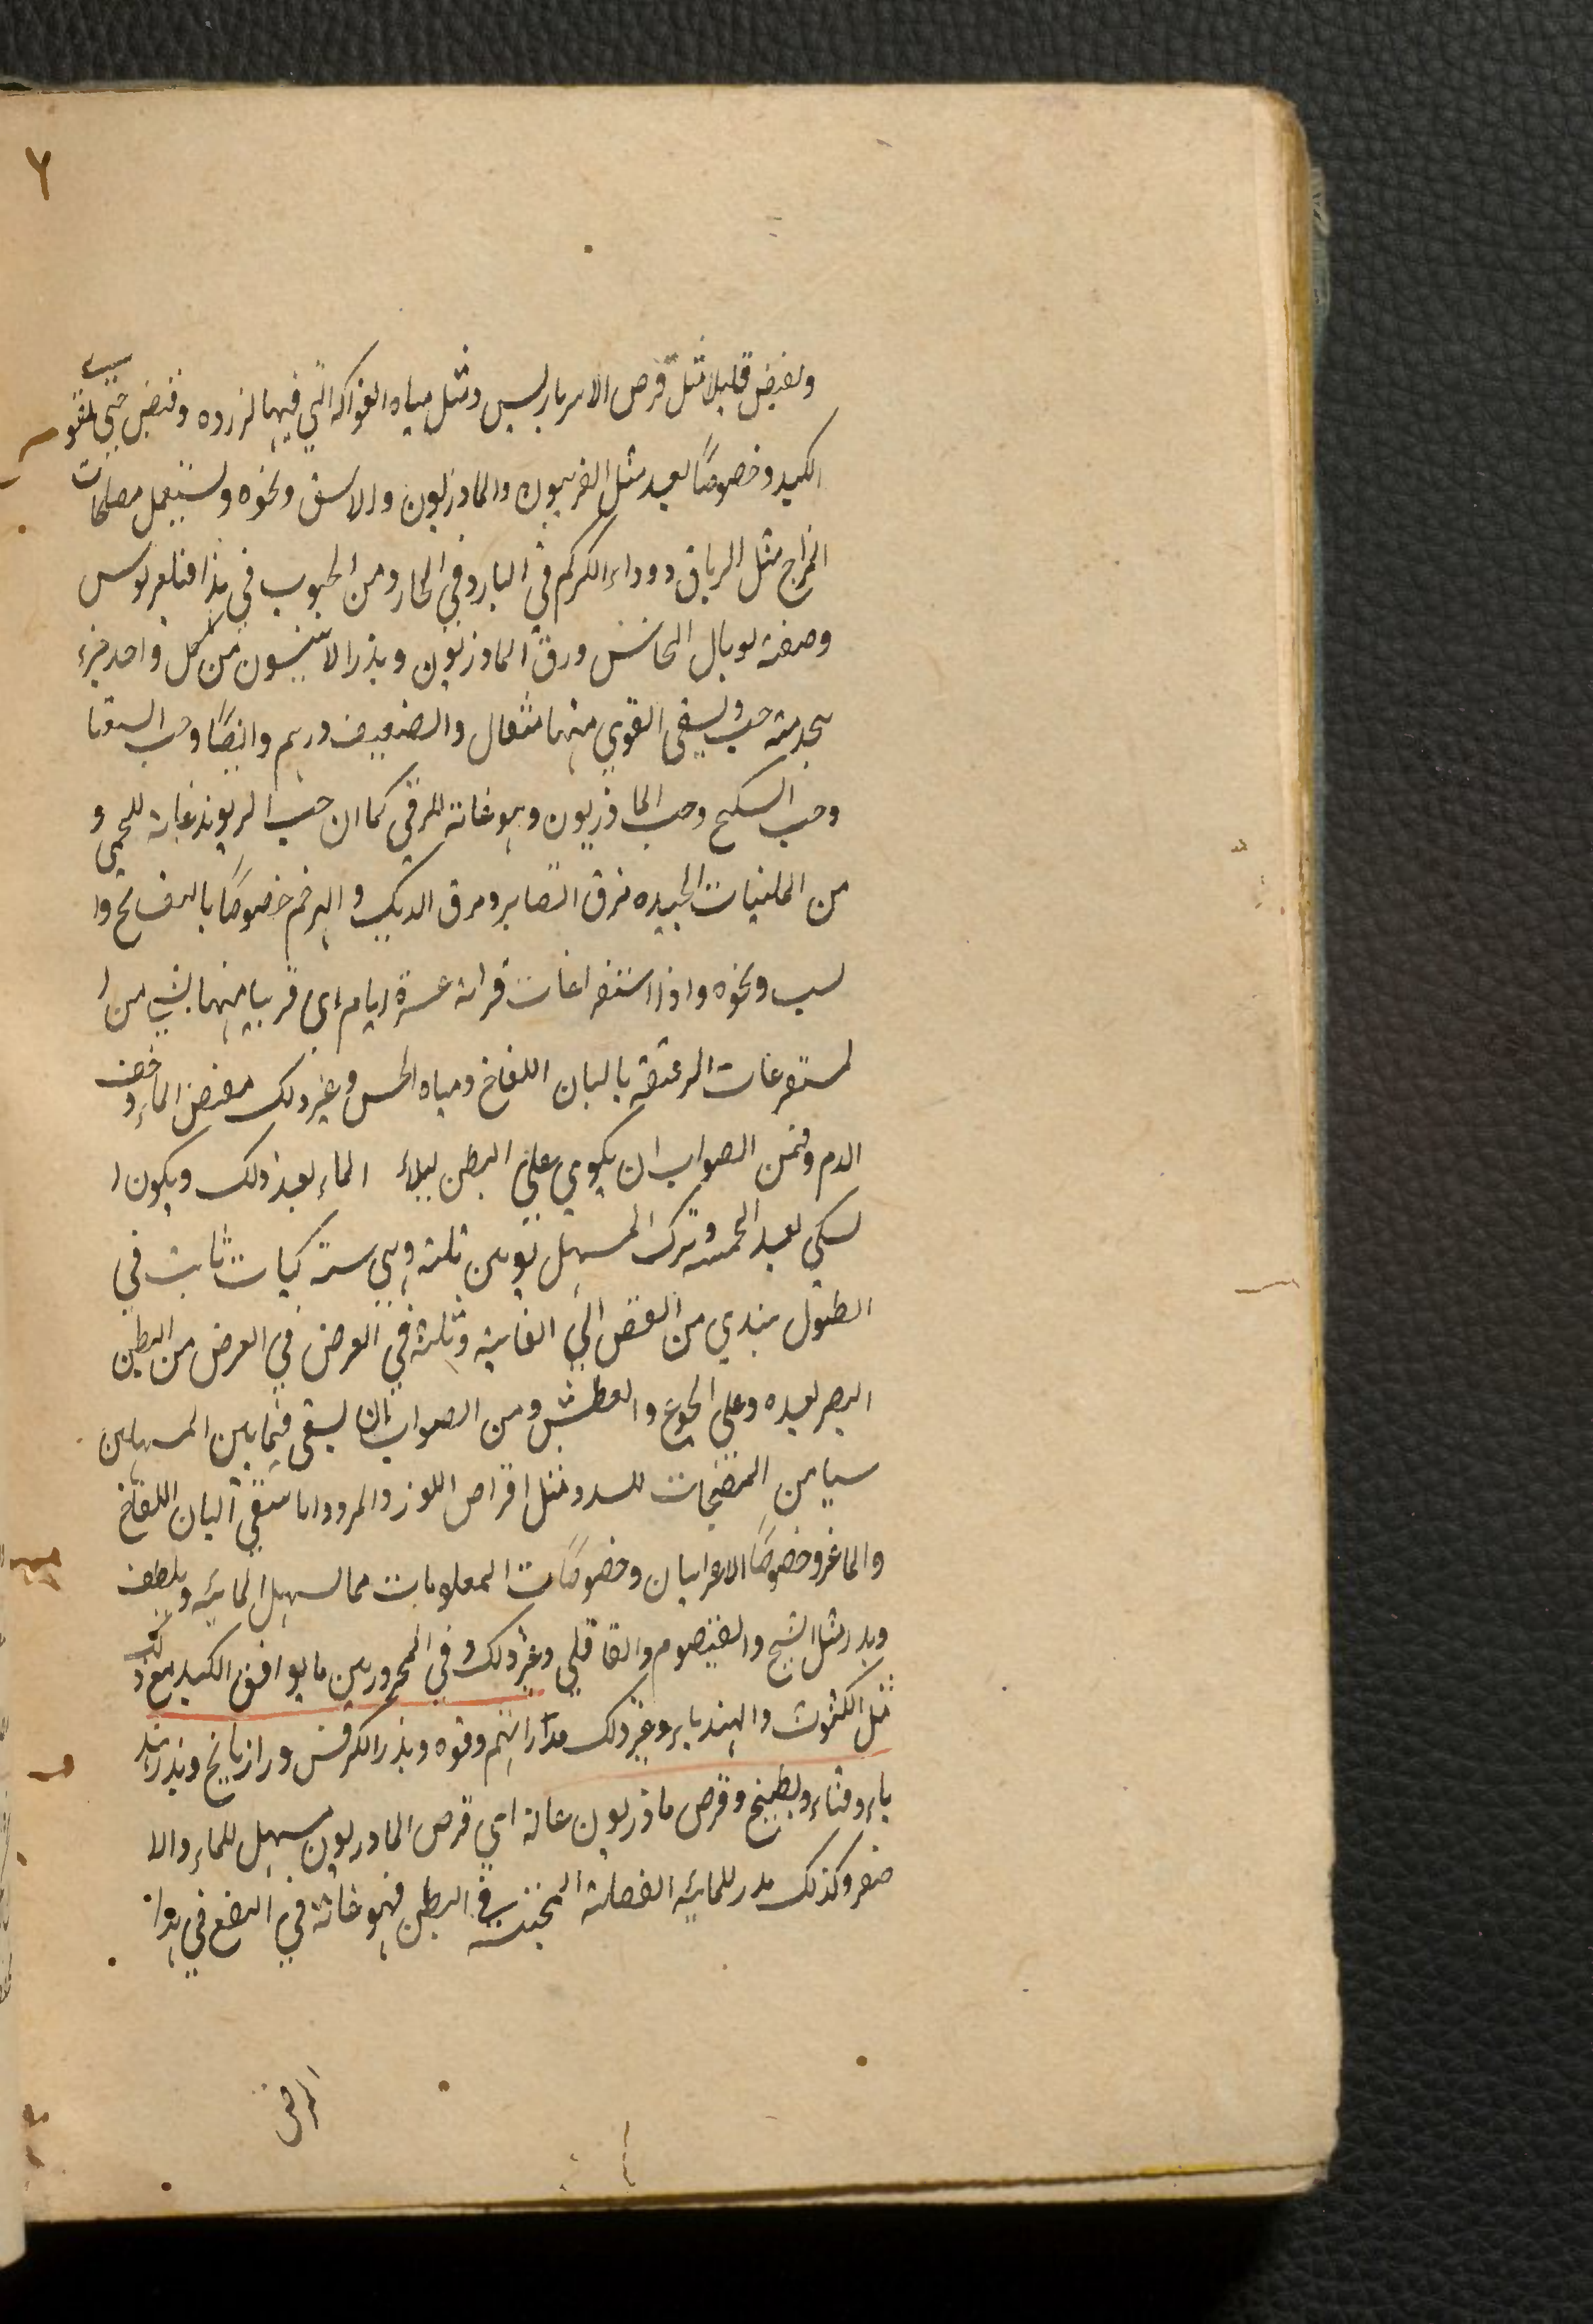 ٦
وتقبض قليلا مثل قرص الامبرباريس ومثل مياه الفواكه التي فيها لزروده وقبض حتي تقوي
الكبد وخصوصًا بعد مثل الفربيون والمازريون والاشق ونحوه ويستعمل مصلحات
المزاج مثل الرياق ودواء الكركم في البارد وفي الحار ومن الحبوب في هذا
وصفته توبال النحاس ورق المازريون وبذر الانيسون من كل واحد جزء
يتخذ منه حب ويسقي القوي منها مثقال والضعيف درهم وايضًا وحب
وحب السكبينج وحب المازريون وهو غاية للزقي كما ان حب الريوند غاية للحمي و
من الملينات الجيده مرق القنابر ومرق الديك الهرم خصوصًا
ونحوه واذا استفراغات قراته عشرة ايام اي قريبا منها بشي من ا
لمستفرغات الرقيقه بالبان اللقاح ومياه الجبن وغير ذلك الماء وخف
الدم ومن الصواب ان يكوي علي البطن ليلا الماء بعد ذلك ويكون ا
لكي بعد الحميه وترك المسهل يومين ثلثه وهي سته كيات ثابت في
الطول يبتدي من القص الي العانية وثلثة في العرض في العرض من البطن
البصر بعده وعلي الجوع والعطش ومن الصواب ان يسقي فيما بين المسهلين
شيا من المفتحات للسدد مثل اقراص اللوز والمر واما سقي البان اللقاح
والماعز وخصوصًا الاعرابيان وخصوصًا المعلوفات مما يسهل المائيه ويلطف
ويدر مثل الشيح والقيصوم والقاقلي وغير ذلك وفي المحرورين ما يوافق الكبد مع ذلك
مثل الكشوث والهندباء وغير ذلك وفوه وبذر الكرفس ورازيانج وبذر هند
باء وقثاء وبطيخ وقرص مازريون غاية اي قرص المازريون مسهل للماء والا
صفر وكذلك مدر للمائيه الفضليه في البطن فهو غاية في النفع في هذا
المرض